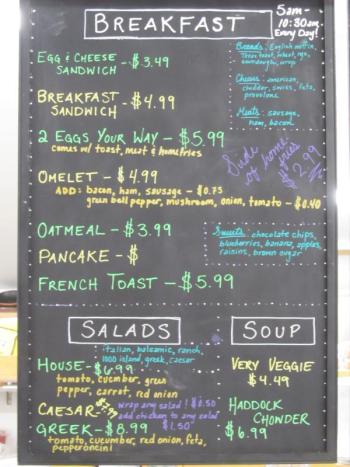 BREAKFAST
5am-
10:30am
Every Day!
EGG & CHEESE
SANDWICH - $3.49
BREAKFAST
SANDWICH - $4.99
Breads: English muffin,
Texas toast, wheat, rye,
sourdough, wrap
Cheeses: american,
cheddar, swiss, feta,
provolone
Meats: sausage,
ham, bacon
2 EGGS YOUR WAY - $5.99
comes w/ toast, meat & homefries
Side
of home
fries
$2.99
OMELET - $4.99
ADD: bacon, ham, sausage - $0.75
green bell pepper, mushroom, onion, tomato - $0.40
OATMEAL - $3.99
PANCAKE - $
FRENCH TOAST - $5.99
Sweets: chocolate chips,
blueberries, banana, apples,
raisins, brown sugar
SALADS
italian, balsamic, ranch,
1000 island, greek, caesar
HOUSE - $6.99
tomato, cucumber, green
pepper, carrot, red onion
CAESAR -
wrap any salad!
add chicken to any salad
$1.50
GREEK - $8.99
tomato, cucumber, red onion, feta,
pepperoncini
SOUP
VERY VEGGIE
$4.49
HADDOCK
CHONDER
$6.99